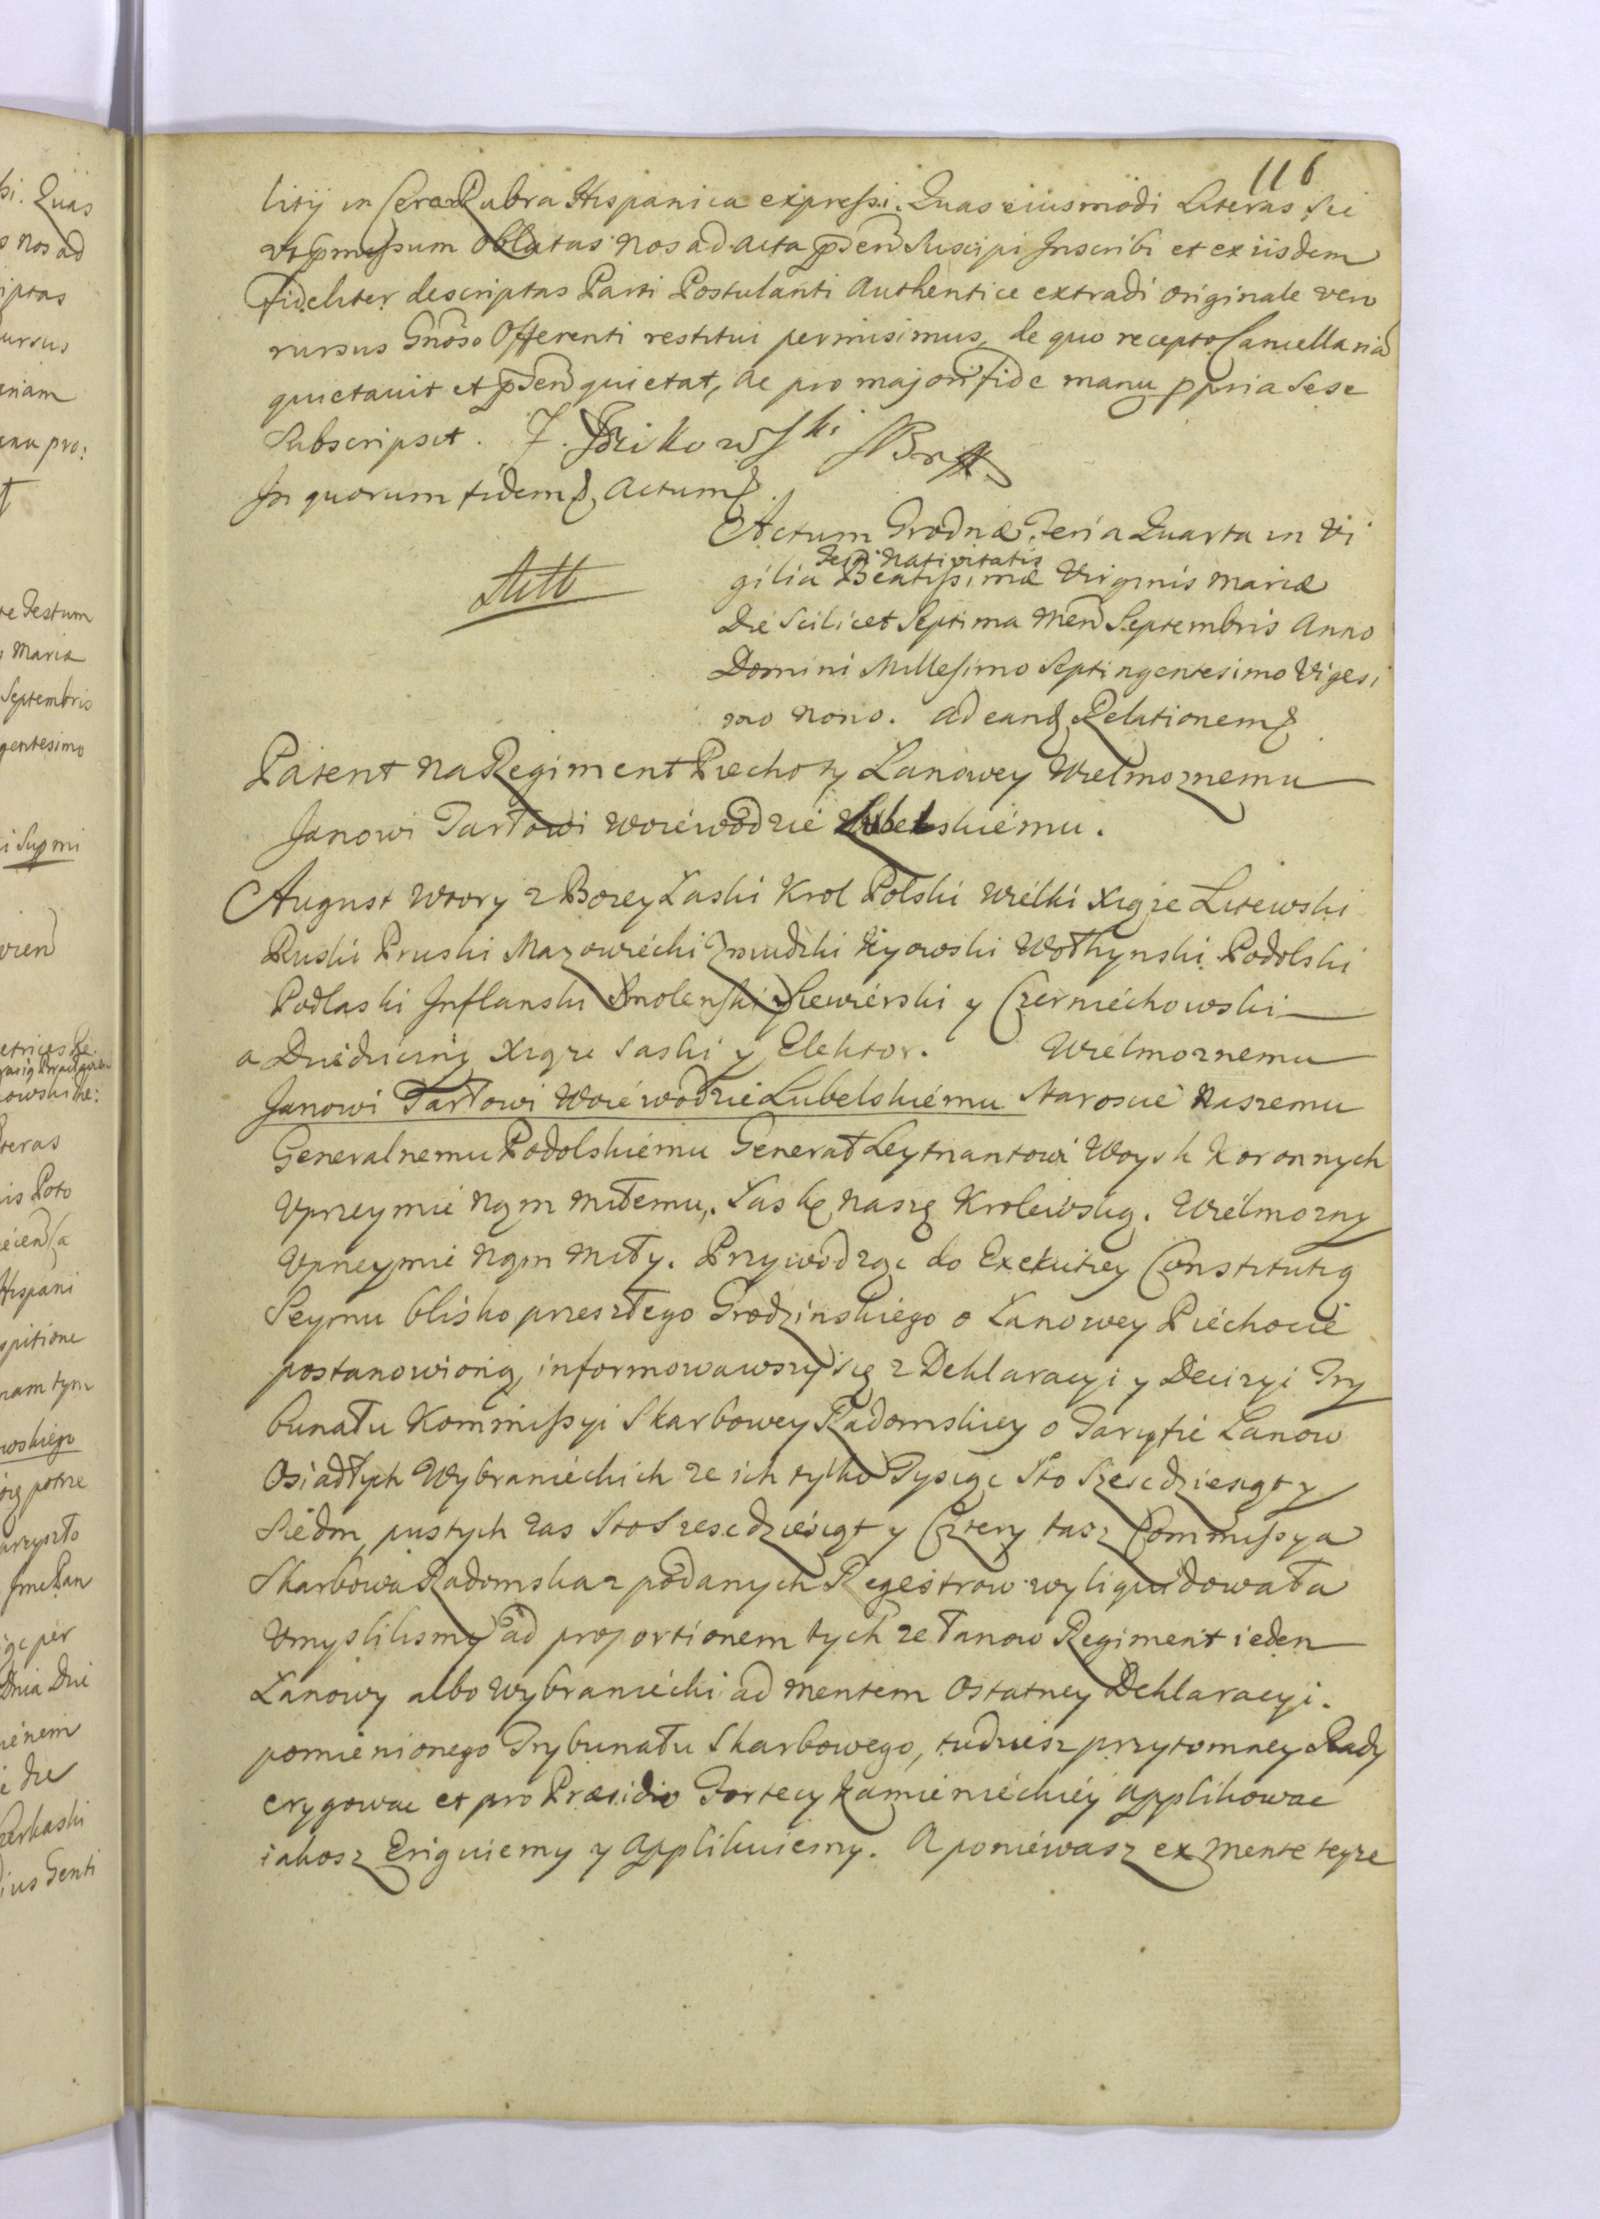 116
litij in Cera Rubra Hispanica expressi. Quas eiusmodi Literas sic
ut pmissum oblatas nos ad acta psen suscipi Inscribi et ex iisdem
fideliter descriptas Parti Postulanti Authentice extradi originale vero
rursus Gnoso Offerenti restitui permisimus, de quo recepto Cancellariam
quietavit et psen quietat, ac pro majori fide manu ppria sese
Subscripsit.
In quorum fidem Actum
Actum Grodnæ Feria Quarta in Vi
Festi Nativitatis
gilia Beatissimæ Virginis Mariæ
Die Scilicet Septima Men Septembris Anno
Domini Millesimo Septingentesimo Vigesi
mo nono. Ad eand Relationem
Patent na Regiment Piechoty Lanowey Wielmoznemu
Janowi Tarłowi Woiewodzie Lubelskiemu.
August Wtory z Bozey Łaski Krol Polski Wielki Xiąze Litewski
Ruski Pruski Mazowiecki Zmudzki Kijowski Wołhynski Podolski
Podlaski Inflanski Smolenski Siewierski y Czerniechowski
a Dziedziczny Xiąze Saski y Elektor. Wielmoznemu
Janowi Tarłowi Woiewodzie Lubelskiemu Staroscie Naszemu
Generalnemu Podolskiemu Generał Leytnantowi Woysk Koronnych
Uprzeymie Nąm Miłemu, Łaskę naszę Krolewską. Wielmozny
Uprzeymie Nąm Miły. Przywodząc do Exekutiey Constitutią
Seymu blisko przeszłego Grodzinskiego o Łanowey Piechocie
postanowioną, informowawszy się z Deklaracyi y Decizyi Try
bunału Kommissyi Skarbowey Radomskiey o Taryfie Lanow
Osiadłych Wybranieckich ze ich tylko Tysiąc Sto Szescdziesiąt y
Siedm, pustych zas Sto Szescdziesiąt y Cztery tasz Commissya
Skarbowa Radomska z podanych Regestrow wyliquidowała
Umyslilismy ad proportionem tych ze Łanow Regiment ieden
Łanowy albo Wybraniecki ad mentem Ostatney Deklaracyi.
pomienionego Trybunału Skarbowego, tudziesz przytomney Rady
erygowac et pro Præsidio Fortecy Kamienieckiey applikowac
iakosz Eriguiemy y Applikuiemy. A poniewasz ex mente teyze